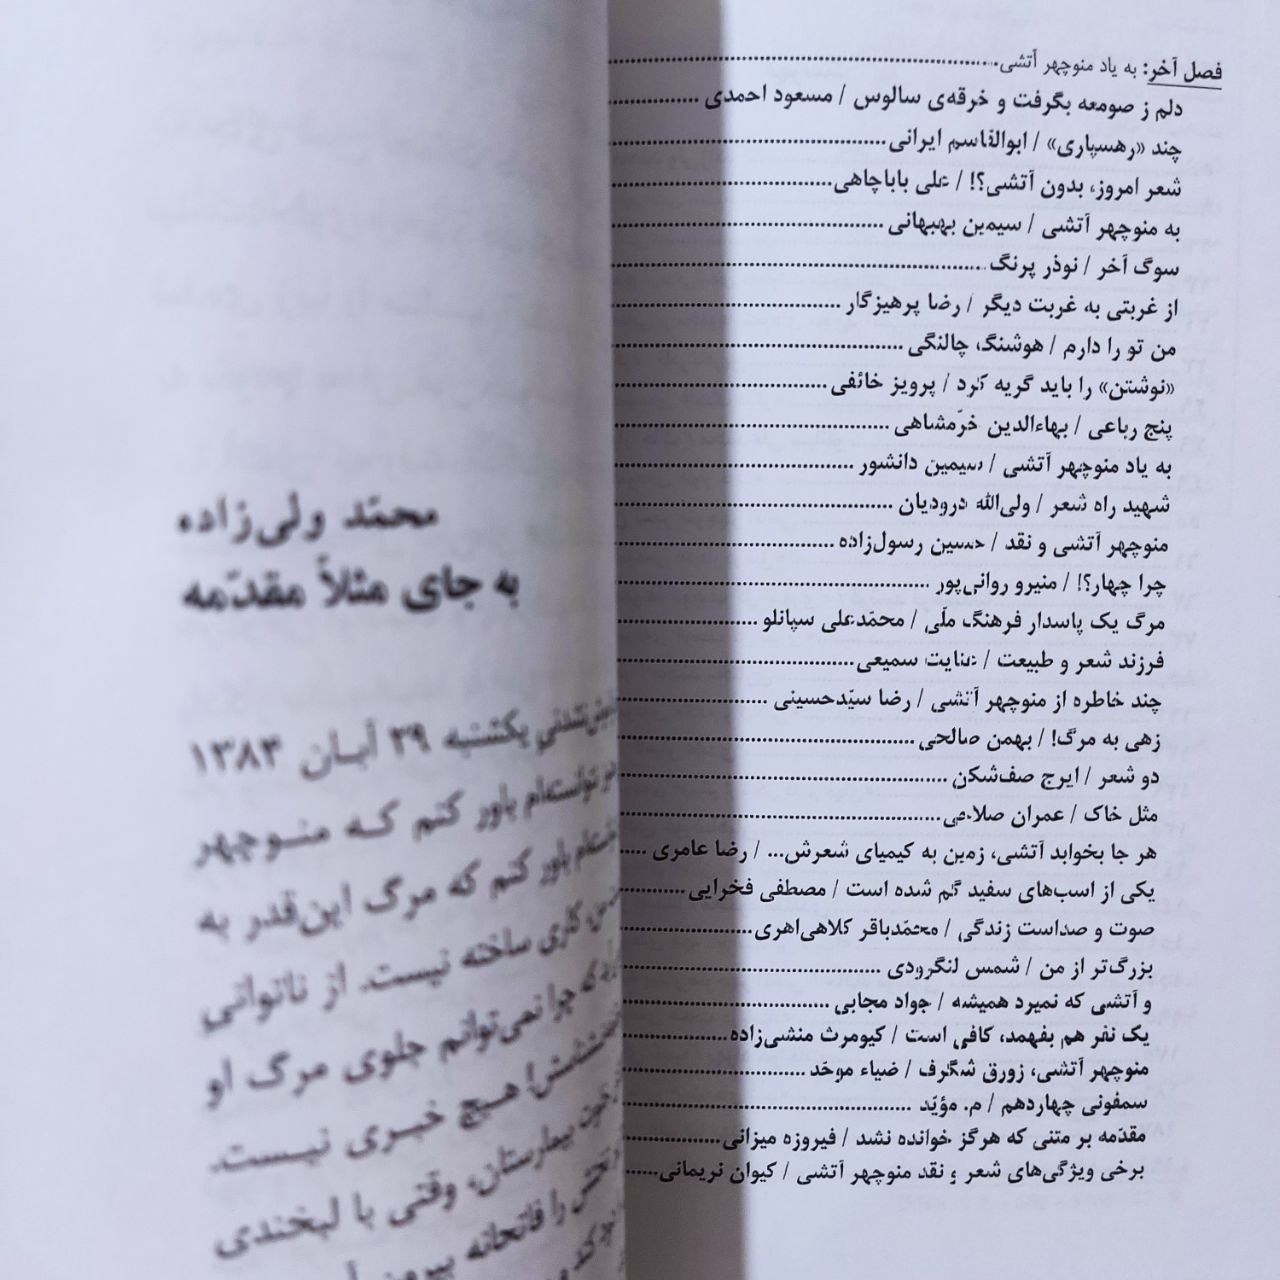 فصل آخر: به یاد منوچهر آتشی
دلم ز صومعه بگرفت و خرقه‌ی سالوس / مسعود احمدی
چند «رهسپاری» / ابوالقاسم ایرانی
شعر امروز، بدون آتشی؟! / علی باباچاهی
به منوچهر آتشی / سیمین بهبهانی
سوگ آخر / نوذر پرنگ
از غربتی به غربت دیگر / رضا پرهیزگار
من تو را دارم / هوشنگ چالنگی
«نوشتن» را باید گریه کرد / پرویز خائفی
پنج رباعی / بهاءالدین خرّمشاهی
به یاد منوچهر آتشی / سیمین دانشور
شهید راه شعر / ولی‌الله درودیان
منوچهر آتشی و نقد / حسین رسول‌زاده
چرا چهار؟! / منیرو روانی‌پور
مرگ یک پاسدار فرهنگ ملّی / محمّدعلی سپانلو
فرزند شعر و طبیعت / عنایت سمیعی
چند خاطره از منوچهر آتشی / رضا سیّدحسینی
زهی به مرگ! / بهمن صالحی
دو شعر / ایرج صف‌شکن
مثل خاک / عمران صلاحی
هر جا بخوابد آتشی، زمین به کیمیای شعرش... / رضا عامری
یکی از اسب‌های سفید گم شده است / مصطفی فخرایی
صوت و صداست زندگی / محمّدباقر کلاهی‌اهری
بزرگ‌تر از من / شمس لنگرودی
و آتشی که نمیرد همیشه / جواد مجابی
یک نفر هم بفهمد، کافی است / کیومرث منشی‌زاده
منوچهر آتشی، زورق شگرف / ضیاء موحّد
سمفونی چهاردهم / م. مؤیّد
مقدّمه بر متنی که هرگز خوانده نشد / فیروزه میزانی
برخی ویژگی‌های شعر و نقد منوچهر آتشی / کیوان نریمانی
محمّد ولی‌زاده
به جای مثلاً مقدّمه
یکشنبه ۲۹ آبان ۱۳۸۴
توانسته‌ام باور کنم که منوچهر
باور کنم که مرگ این‌قدر به
کاری ساخته نیست. از ناتوانی
که چرا نمی‌توانم جلوی مرگ او
هیچ خبری نیست.
بیمارستان، وقتی با لبخندی
را فاتحانه بیرون